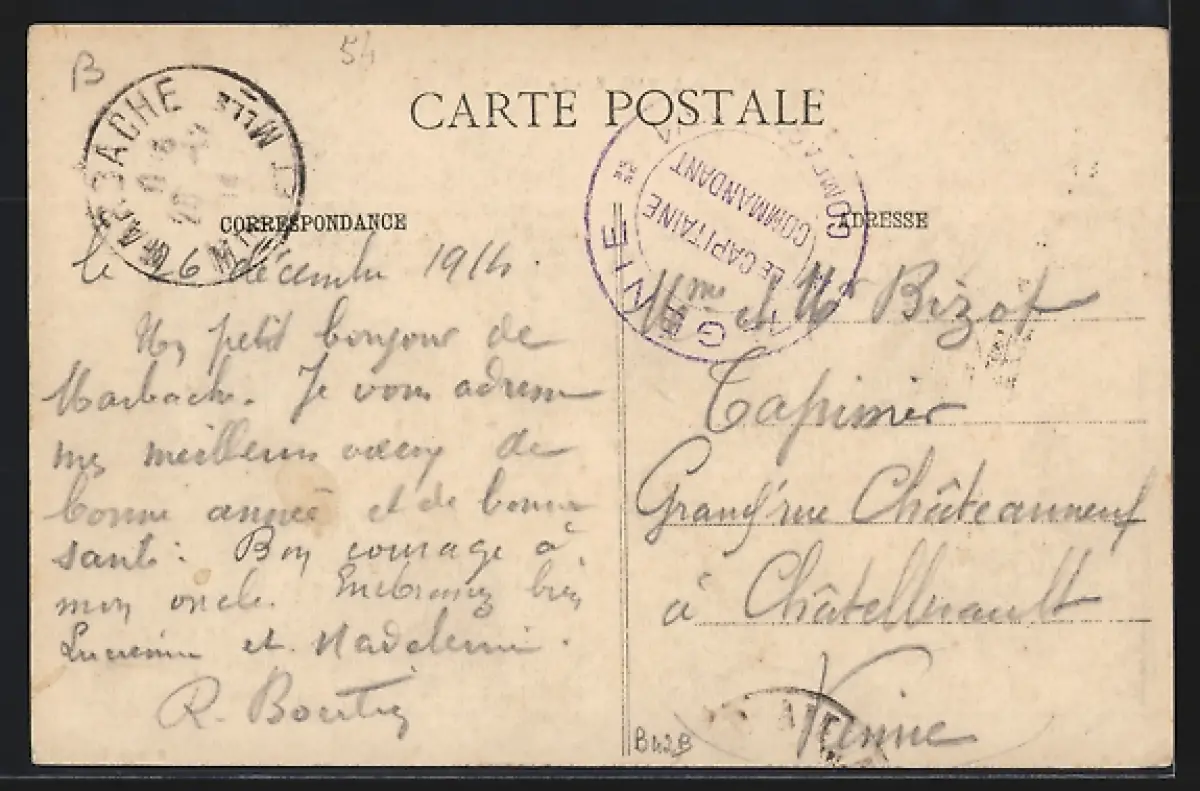 B
54
CARTE POSTALE
MARBACHE
MTHE ET MLLE
GÉNIE
COMPAGNIE
LE CAPITAINE
COMMANDANT
CORRESPONDANCE
ADRESSE
le 26 décembre 1914.
Un petit bonjour de
Marbache. Je vous adresse
mes meilleurs vœux de
bonne année et de bonne
santé. Bon courage à
mon oncle. Embrassez bien
Lucienne et Madeleine.
R.
Mme et Mr Bizot
Tapissier
Grand'rue Châteauneuf
à Châtellerault
Vienne
B42B